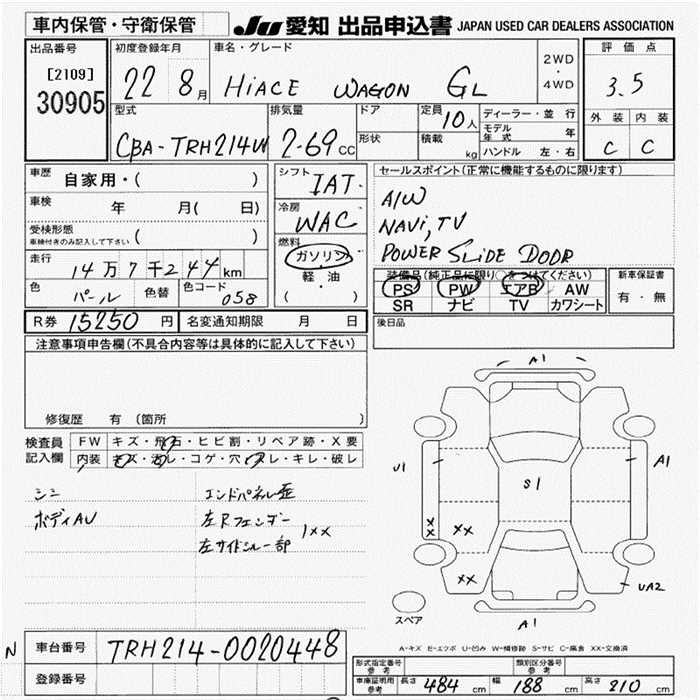 車内保管・守衛保管
JU 愛知 出品申込書 JAPAN USED CAR DEALERS ASSOCIATION
出品番号
[2109]
30905
初度登録年月
22 8月
車名・グレード
HIACE WAGON GL
2WD
・
4WD
評価点
3.5
外装 内装
C C
型式
CBA-TRH214W
排気量
2-69cc
ドア
形状
定員
10人
積載
kg
ディーラー・並行
モデル年式 年
ハンドル 左・右
車歴 自家用・( )
車検 年 月( 日)
受検形態
車検付きのみ記入して下さい ( )
走行 14万7千244km
色 パール 色替 色コード 058
R券 15250円 名変通知期限 月 日
シフト IAT
冷房 WAC
燃料
ガソリン
軽・油
セールスポイント(正常に機能するものに限ります)
A/W
NAVI, TV
POWER SLIDE DOOR
装備品(純正品に限り○をつけてください)
PS PW エアB AW
SR ナビ TV カワシート
新車保証書
有・無
後日品
注意事項申告欄(不具合内容等は具体的に記入して下さい)
修復歴 有(箇所 )
検査員記入欄
FW キズ・飛石・ヒビ割・リペア跡・X要
内装 キズ・汚レ・コゲ・穴・スレ・キレ・破レ
シミ
ボディAU
エンドパネル歪
左Rフェンダー
左サイドシル一部
1××
A1
U1
S1
A1
××
××
××
UA2
A1
スペア
A-キズ E-エクボ U-凹み W-補修跡 S-サビ C-腐食 XX-交換済
N 車台番号 TRH214-0020448
登録番号
形式指定番号
参考
類別区分番号
参考
車庫証明用
参考
長さ 484cm 幅 188cm 高さ 210cm